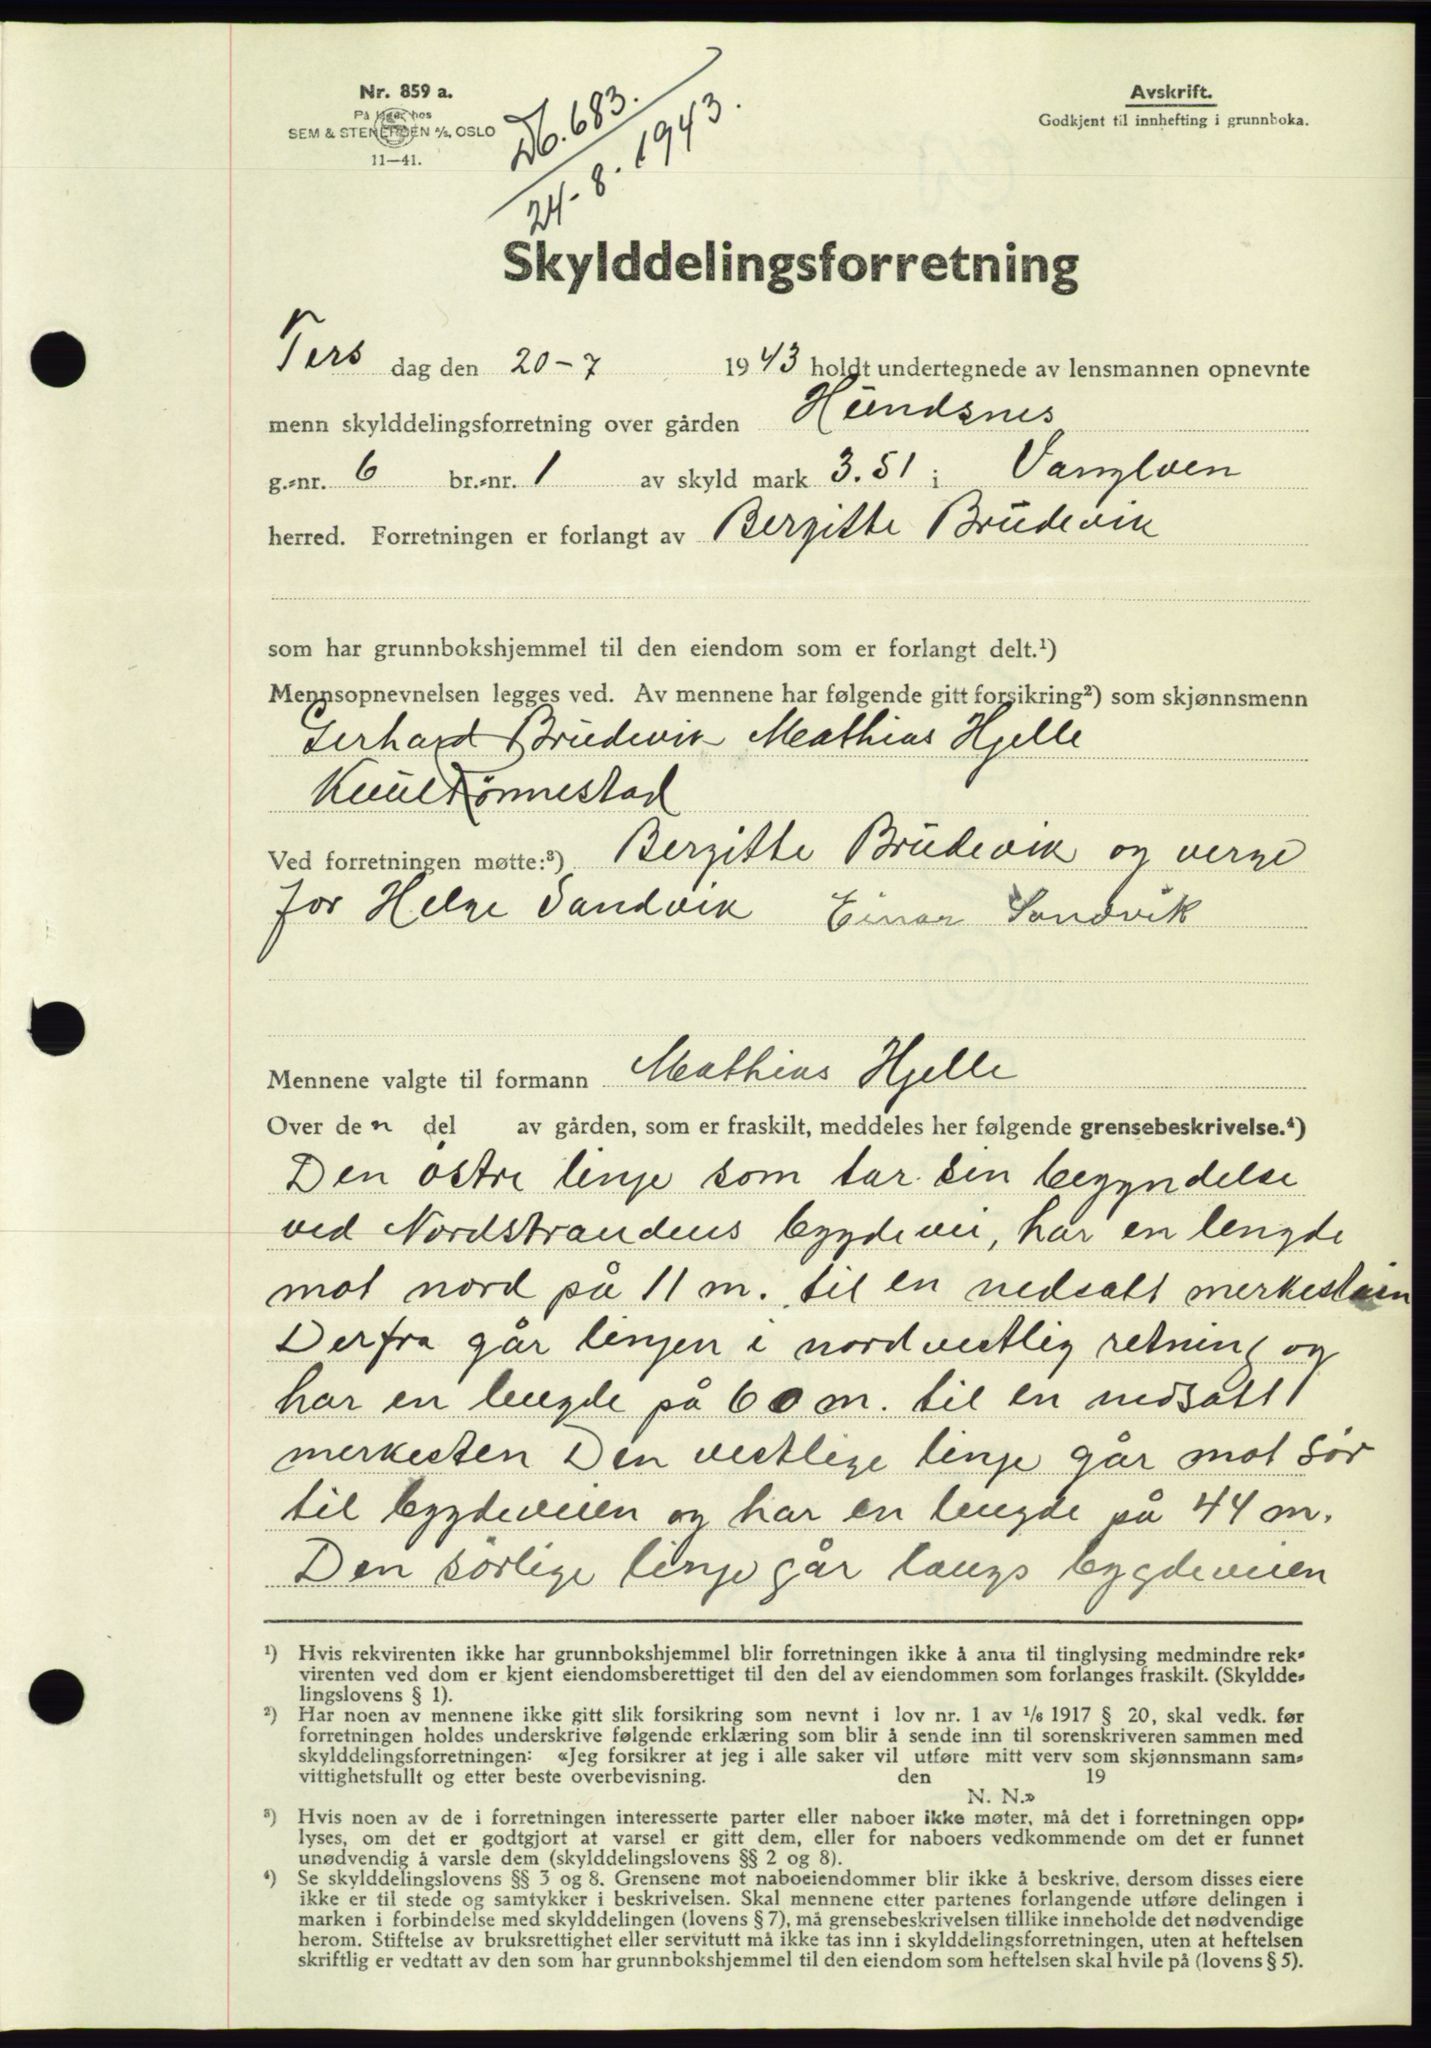 Nr. 859 a.
På lager hos
SEM & STENERSEN A/S, OSLO
11—41.
Db. 683.
24-8-1943.
Avskrift.
Godkjent til innhefting i grunnboka.
Skylddelingsforretning
Tersdag den 20-7 1943 holdt undertegnede av lensmannen opnevnte
menn skylddelingsforretning over gården Hundsnes
g.-nr. 6 br.-nr. 1 av skyld mark 3.51 i Vanylven
herred. Forretningen er forlangt av Bergitte Brudevik
som har grunnbokshjemmel til den eiendom som er forlangt delt.¹)
Mennsopnevnelsen legges ved. Av mennene har følgende gitt forsikring²) som skjønnsmenn
Gerhard Brudevik Mathias Hjelle
Rönnestad
Ved forretningen møtte:³) Bergitte Brudevik og verge
for Helge Sandvik Einar Sandvik
Mennene valgte til formann Mathias Hjelle
Over den del av gården, som er fraskilt, meddeles her følgende grensebeskrivelse.⁴)
Den östre linje som tar sin begyndelse
ved Nordstrandens bygdevei, har en lengde
mot nord på 11 m. til en nedsatt merkestein
Derfra går linjen i nordvestlig retning og
har en lengde på 60 m. til en nedsatt
merkesten Den vestlige linje går mot sör
til bygdeveien og har en lengde på 44 m.
Den sörlige linje går langs bygdeveien
¹) Hvis rekvirenten ikke har grunnbokshjemmel blir forretningen ikke å anta til tinglysing medmindre rek-
virenten ved dom er kjent eiendomsberettiget til den del av eiendommen som forlanges fraskilt. (Skyldde-
lingslovens § 1).
²) Har noen av mennene ikke gitt slik forsikring som nevnt i lov nr. 1 av 1/6 1917 § 20, skal vedk. før
forretningen holdes underskrive følgende erklæring som blir å sende inn til sorenskriveren sammen med
skylddelingsforretningen: «Jeg forsikrer at jeg i alle saker vil utføre mitt verv som skjønnsmann sam-
vittighetsfullt og etter beste overbevisning. den 19
N. N.»
³) Hvis noen av de i forretningen interesserte parter eller naboer ikke møter, må det i forretningen opp-
lyses, om det er godtgjort at varsel er gitt dem, eller for naboers vedkommende om det er funnet
unødvendig å varsle dem (skylddelingslovens §§ 2 og 8).
⁴) Se skylddelingslovens §§ 3 og 8. Grensene mot naboeiendommer blir ikke å beskrive, dersom disses eiere
ikke er til stede og samtykker i beskrivelsen. Skal mennene etter partenes forlangende utføre delingen i
marken i forbindelse med skylddelingen (lovens § 7), må grensebeskrivelsen tillike inneholde det nødvendige
herom. Stiftelse av bruksrettighet eller servitutt må ikke tas inn i skylddelingsforretningen, uten at heftelsen
skriftlig er vedtatt av den som har grunnbokshjemmel til den eiendom som heftelsen skal hvile på (lovens § 5).